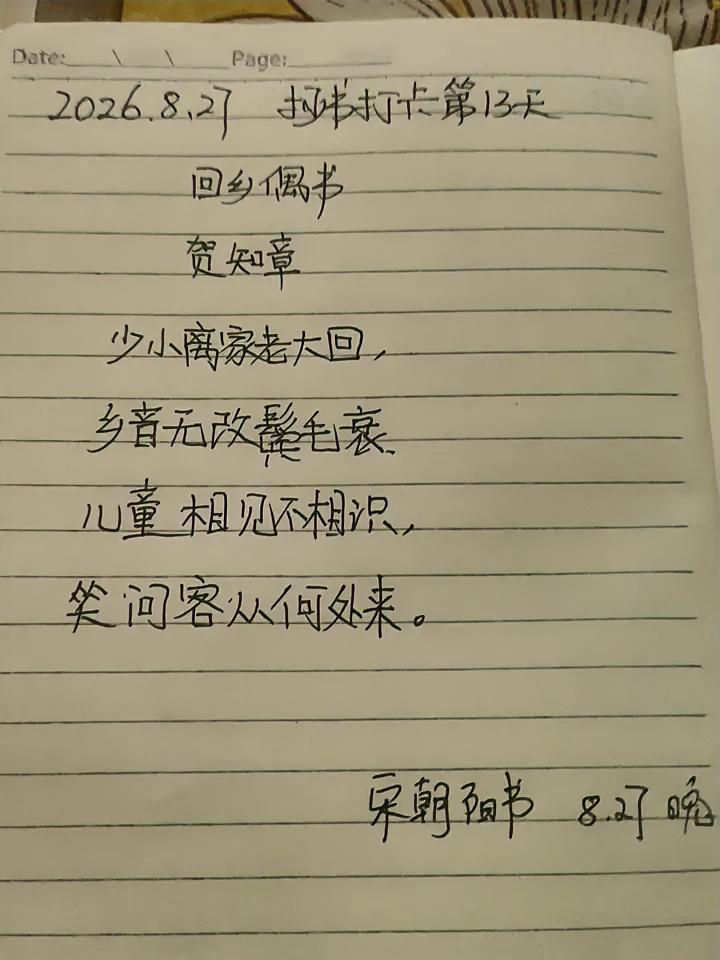 Date: \ \ Page:
2026.8.27 抄书打卡第13天
回乡偶书
贺知章
少小离家老大回，
乡音无改鬓毛衰.
儿童相见不相识，
笑问客从何处来。
宋朝阳书 8.27 晚